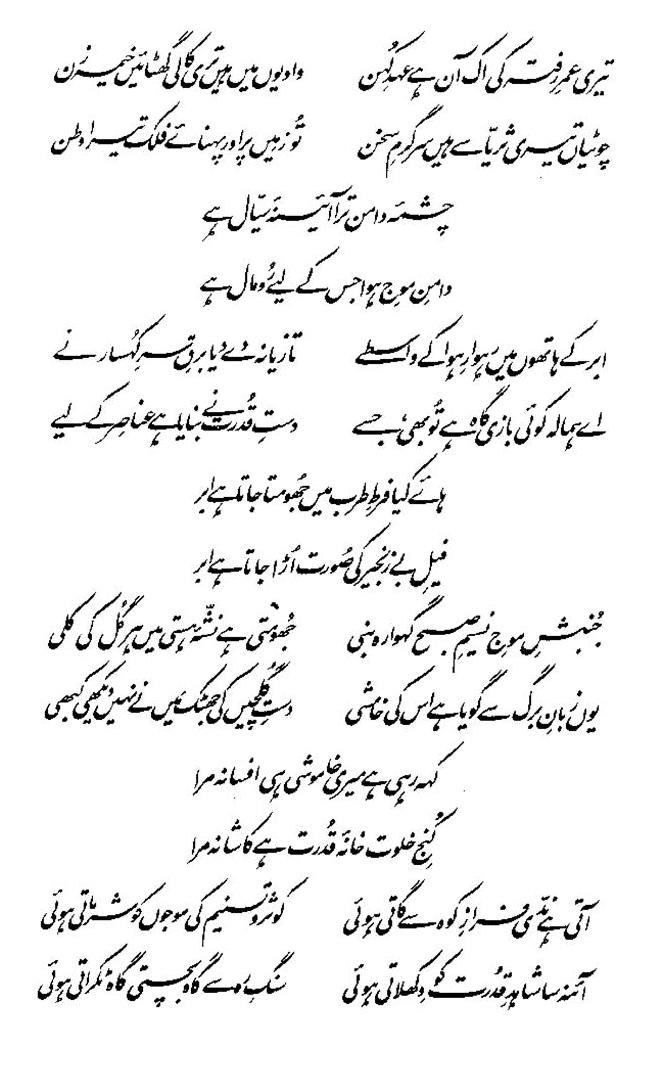 تیری عمرِ رفتہ کی اک آن ہے عہدِ کُہن وادیوں میں ہیں تری کالی گھٹائیں خیمہ زن
چوٹیاں تیری ثریّا سے ہیں سرگرمِ سخن تُو زمیں پر اور پہنائے فلک تیرا وطن
چشمۂ دامن ترا آئینۂ سیّال ہے
دامنِ موجِ ہوا جس کے لیے رُومال ہے
ابر کے ہاتھوں میں رہوارِ ہوا کے واسطے تازیانہ دے دیا برقِ سرِ کہُسار نے
اے ہمالہ کوئی بازی گاہ ہے تُو بھی، جسے دستِ قُدرت نے بنایا ہے عناصر کے لیے
ہائے کیا فرطِ طرب میں جُھومتا جاتا ہے ابر
فیلِ بے زنجیر کی صُورت اُڑا جاتا ہے ابر
جُنبشِ موجِ نسیمِ صبح گہوارہ بنی جُھومتی ہے نشّۂ ہستی میں ہر گُل کی کلی
یوں زبانِ برگ سے گویا ہے اس کی خامشی دستِ گُلچیں کی جھٹک میں نے نہیں دیکھی کبھی
کہہ رہی ہے میری خاموشی ہی افسانہ مرا
کُنجِ خلوت خانۂ قُدرت ہے کاشانہ مرا
آتی ہے ندّی فرازِ کوہ سے گاتی ہوئی کوثر و تسنیم کی موجوں کو شرماتی ہوئی
آئنہ سا شاہدِ قُدرت کو دِکھلاتی ہوئی سنگِ رہ سے گاہ بچتی گاہ ٹکراتی ہوئی